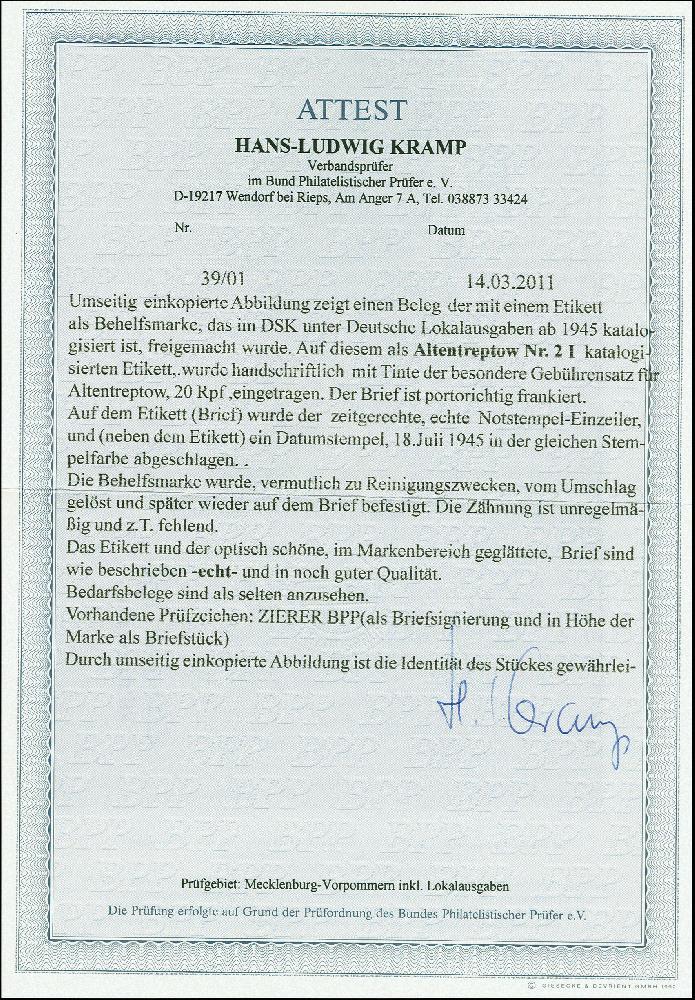 ATTEST
HANS-LUDWIG KRAMP
Verbandsprüfer
im Bund Philatelistischer Prüfer e. V.
D-19217 Wendorf bei Rieps, Am Anger 7 A, Tel. 038873 33424
Nr. Datum
39/01 14.03.2011
Umseitig einkopierte Abbildung zeigt einen Beleg der mit einem Etikett
als Behelfsmarke, das im DSK unter Deutsche Lokalausgaben ab 1945 katalo-
gisiert ist, freigemacht wurde. Auf diesem als Altentreptow Nr. 2 I katalogi-
sierten Etikett,.wurde handschriftlich mit Tinte der besondere Gebührensatz für
Altentreptow, 20 Rpf.,eingetragen. Der Brief ist portorichtig frankiert.
Auf dem Etikett (Brief) wurde der zeitgerechte, echte Notstempel-Einzeiler,
und (neben dem Etikett) ein Datumstempel, 18.Juli 1945 in der gleichen Stem-
pelfarbe abgeschlagen. .
Die Behelfsmarke wurde, vermutlich zu Reinigungszwecken, vom Umschlag
gelöst und später wieder auf dem Brief befestigt. Die Zähnung ist unregelmä-
ßig und z.T. fehlend.
Das Etikett und der optisch schöne, im Markenbereich geglättete, Brief sind
wie beschrieben -echt- und in noch guter Qualität.
Bedarfsbelege sind als selten anzusehen.
Vorhandene Prüfzeichen: ZIERER BPP(als Briefsignierung und in Höhe der
Marke als Briefstück)
Durch umseitig einkopierte Abbildung ist die Identität des Stückes gewährlei-
H. Kramp
Prüfgebiet: Mecklenburg-Vorpommern inkl. Lokalausgaben
Die Prüfung erfolgte auf Grund der Prüfordnung des Bundes Philatelistischer Prüfer e.V.
© GIESECKE & DEVRIENT GMBH